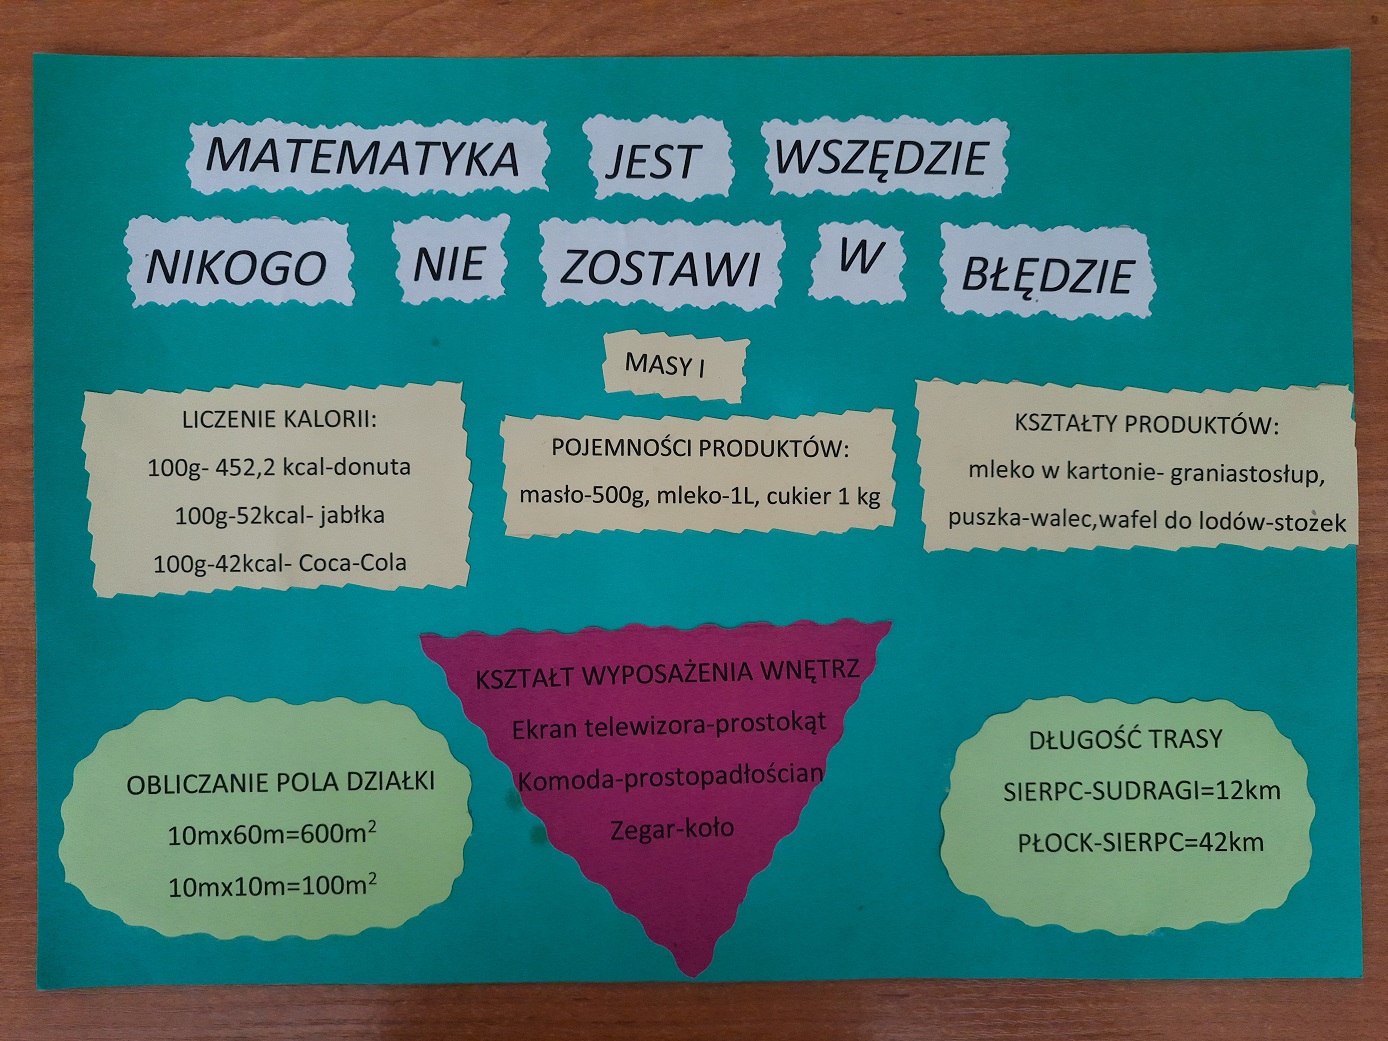 MATEMATYKA JEST WSZĘDZIE
NIKOGO NIE ZOSTAWI W BŁĘDZIE
LICZENIE KALORII:
100g- 452,2 kcal-donuta
100g-52kcal- jabłka
100g-42kcal- Coca-Cola
MASY I
POJEMNOŚCI PRODUKTÓW:
masło-500g, mleko-1L, cukier 1 kg
KSZTAŁTY PRODUKTÓW:
mleko w kartonie- graniastosłup,
puszka-walec,wafel do lodów-stożek
OBLICZANIE POLA DZIAŁKI
10mx60m=600m²
10mx10m=100m²
KSZTAŁT WYPOSAŻENIA WNĘTRZ
Ekran telewizora-prostokąt
Komoda-prostopadłościan
Zegar-koło
DŁUGOŚĆ TRASY
SIERPC-SUDRAGI=12km
PŁOCK-SIERPC=42km